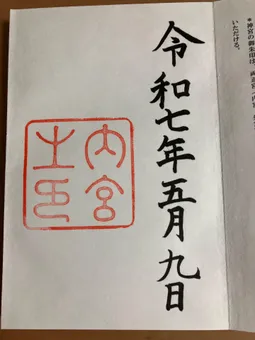 ＊神宮の御朱印は、
いただける。
令和七年五月九日
内宮
之印